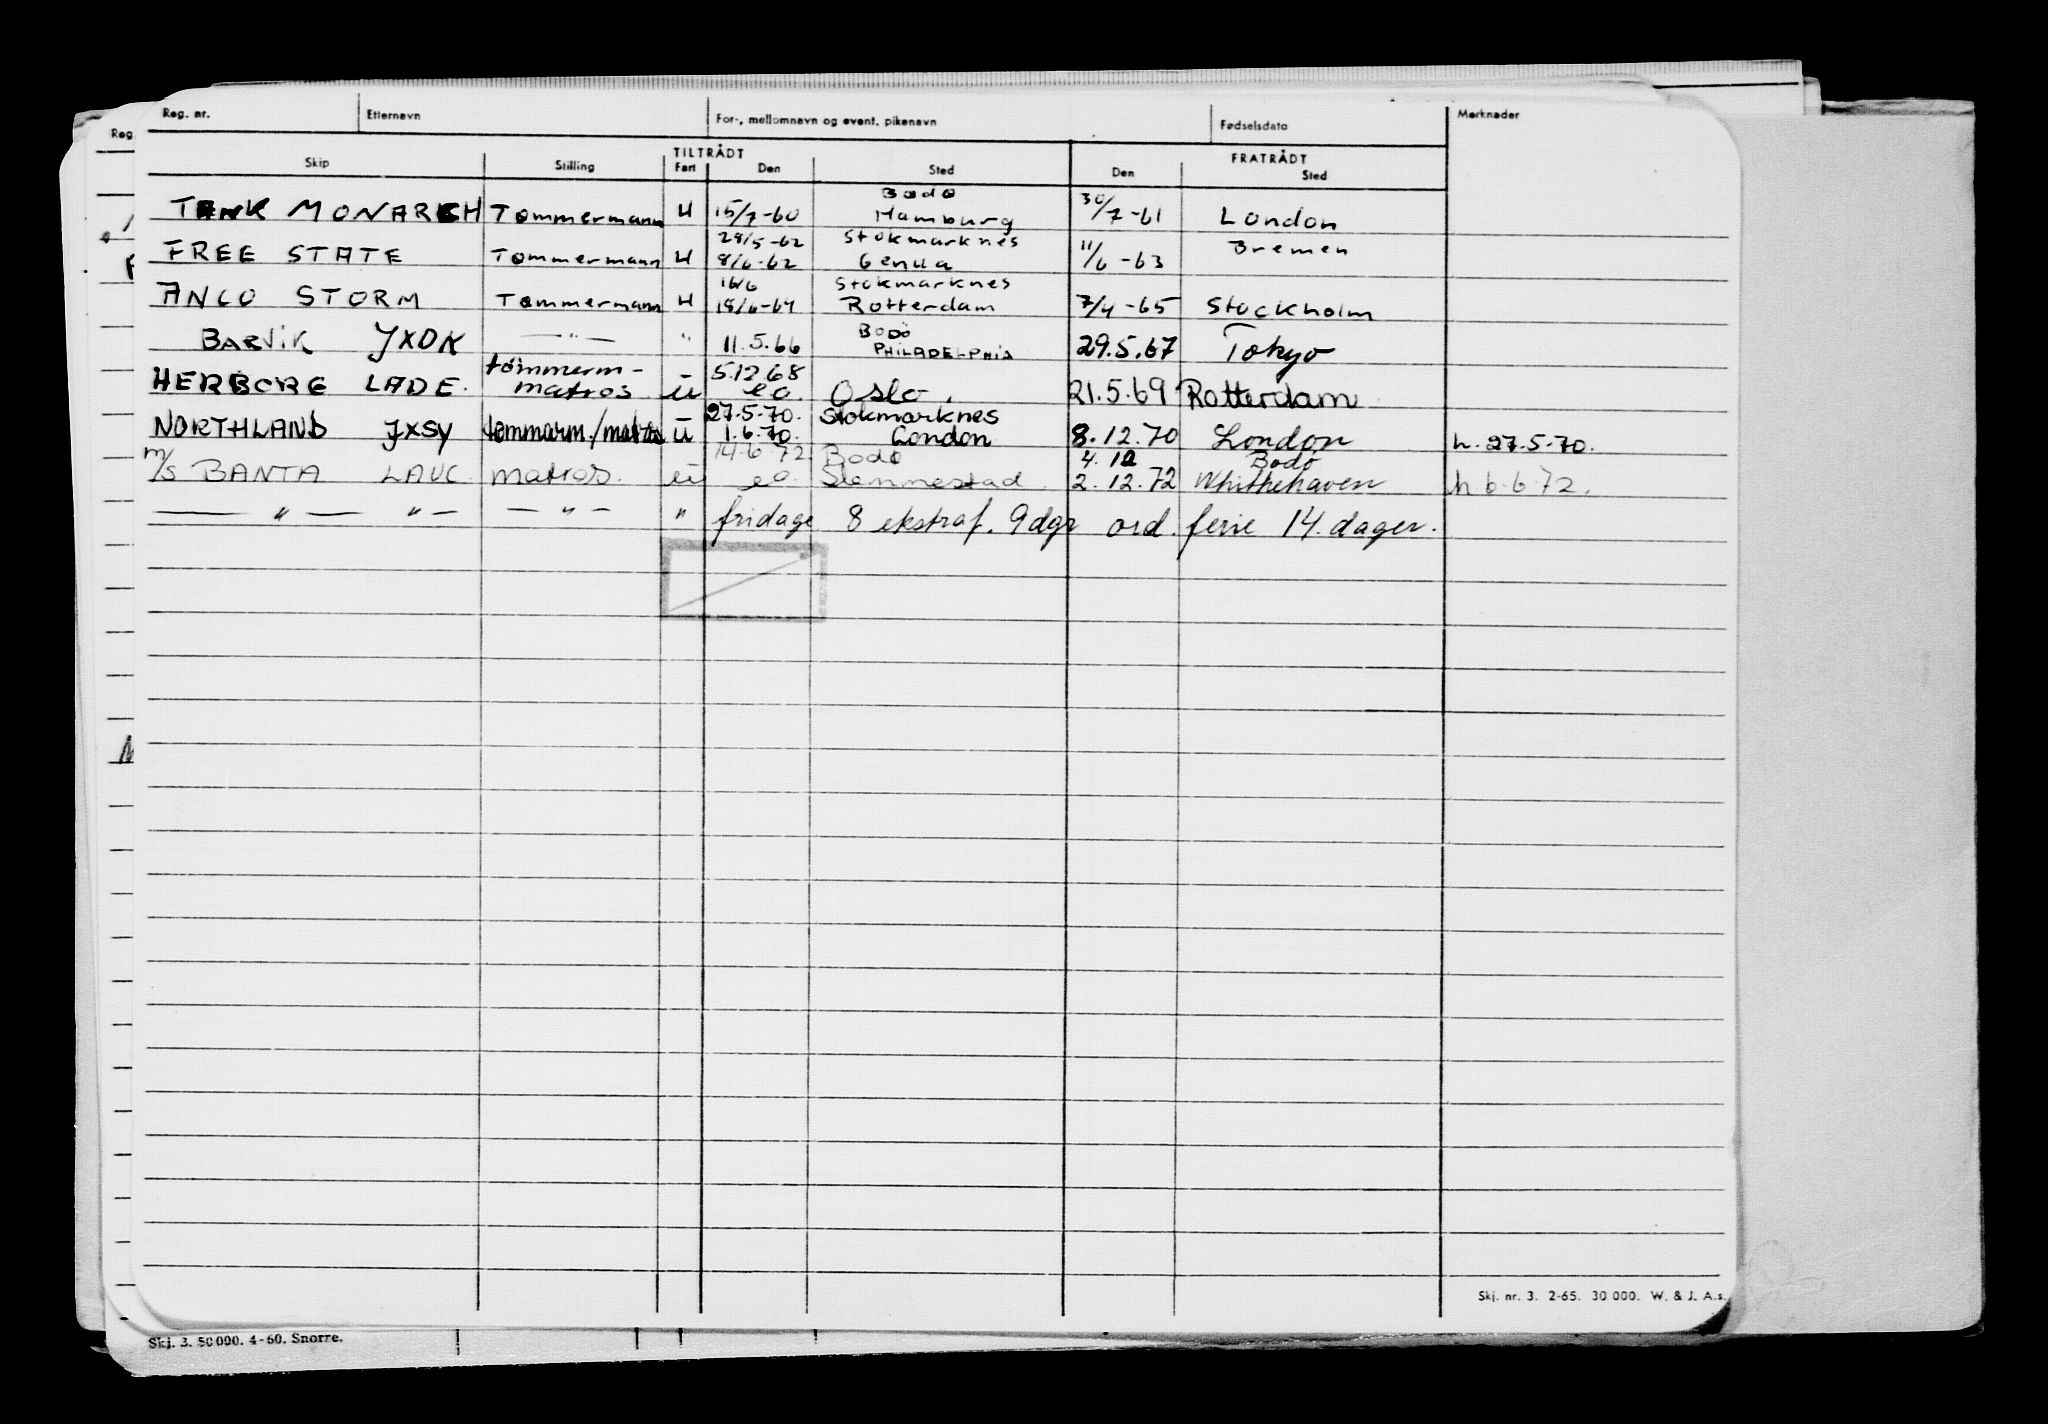 Reg. nr. Etternavn For-, mellomnavn og event. pikenavn Fødselsdato Merknader
TILTRÅDT FRATRÅDT
Skip Stilling Fart Den Sted Den Sted
Bodø
TANK MONARCH Tømmermann U 15/7-60 Hamburg 30/7-61 London
28/5-62 Stokmarknes Bremen
FREE STATE Tømmermann U 8/6-62 Genua 11/6-63
16/6 Stokmarknes
ANCO STORM Tømmermann U 18/6-64 Rotterdam 7/4-65 Stockholm
Bodö
BARVIK JXDK —"— " 11.5.66 PHILADELPHIA 29.5.67 Tokyo
tømmerm- 5.12.68
HERBORG LADE. matros u eo. Oslo. 21.5.69 Rotterdam
27.5.70. Stokmarknes
NORTHLAND JXSY tømmerm./matros u 1.6.70. London 8.12.70 London h. 27.5.70.
14.6.72 Bodø 4.12 Bodø
m/s BANTA LAUC matros. u eo. Slemmestad. 2.12.72 Whithehaven h 6.6.72.
—"— "— —"— " fridage 8 ekstraf. 9 dgr ord. ferie 14. dager.
Skj. nr. 3. 2-65. 30 000. W. & J. A.s.
Skj. 3. 50 000. 4-60. Snorre.